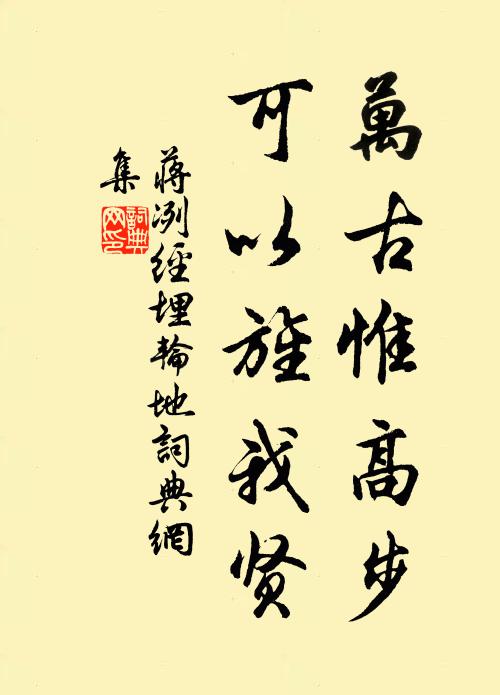 萬古惟高步
可以旌我贤
蒋洌經埋輪地詞典網
集
詞典網印